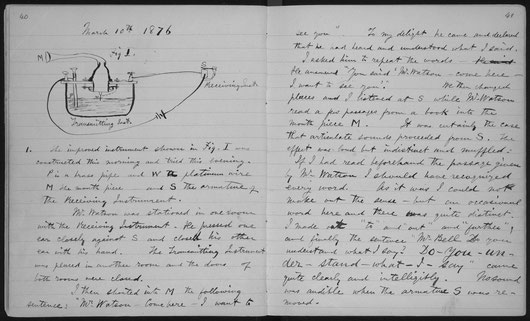 40
March 10th 1876
Fig 1.
M
S
Receiving Inst
P
W
Transmitting Inst
1. The improved instrument shown in Fig. I was
constructed this morning and tried this evening.
P is a brass pipe and W the platinum wire
M the mouth piece and S the armature of
the Receiving Instrument.
Mr. Watson was stationed in one room
with the Receiving Instrument. He pressed one
ear closely against S and closed his other
ear with his hand. The Transmitting Instrument
was placed in another room and the doors of
both rooms were closed.
I then shouted into M the following
sentence: "Mr. Watson - Come here - I want to
41
see you". To my delight he came and declared
that he had heard and understood what I said.
I asked him to repeat the words.
He answered "You said 'Mr. Watson - come here -
I want to see you'." We then changed
places and I listened at S while Mr. Watson
read a few passages from a book into the
mouth piece M. It was certainly the case
that articulate sounds proceeded from S. The
effect was loud but indistinct and muffled.
If I had read beforehand the passage given
by Mr. Watson I should have recognized
every word. As it was I could not
make out the sense - but an occasional
word here and there was quite distinct.
I made out "to" and "out" and "further";
and finally the sentence "Mr. Bell do you
understand what I say? Do-you-un-
der-stand-what-I-say" came
quite clearly and intelligibly. No sound
was audible when the armature S was re-
moved.